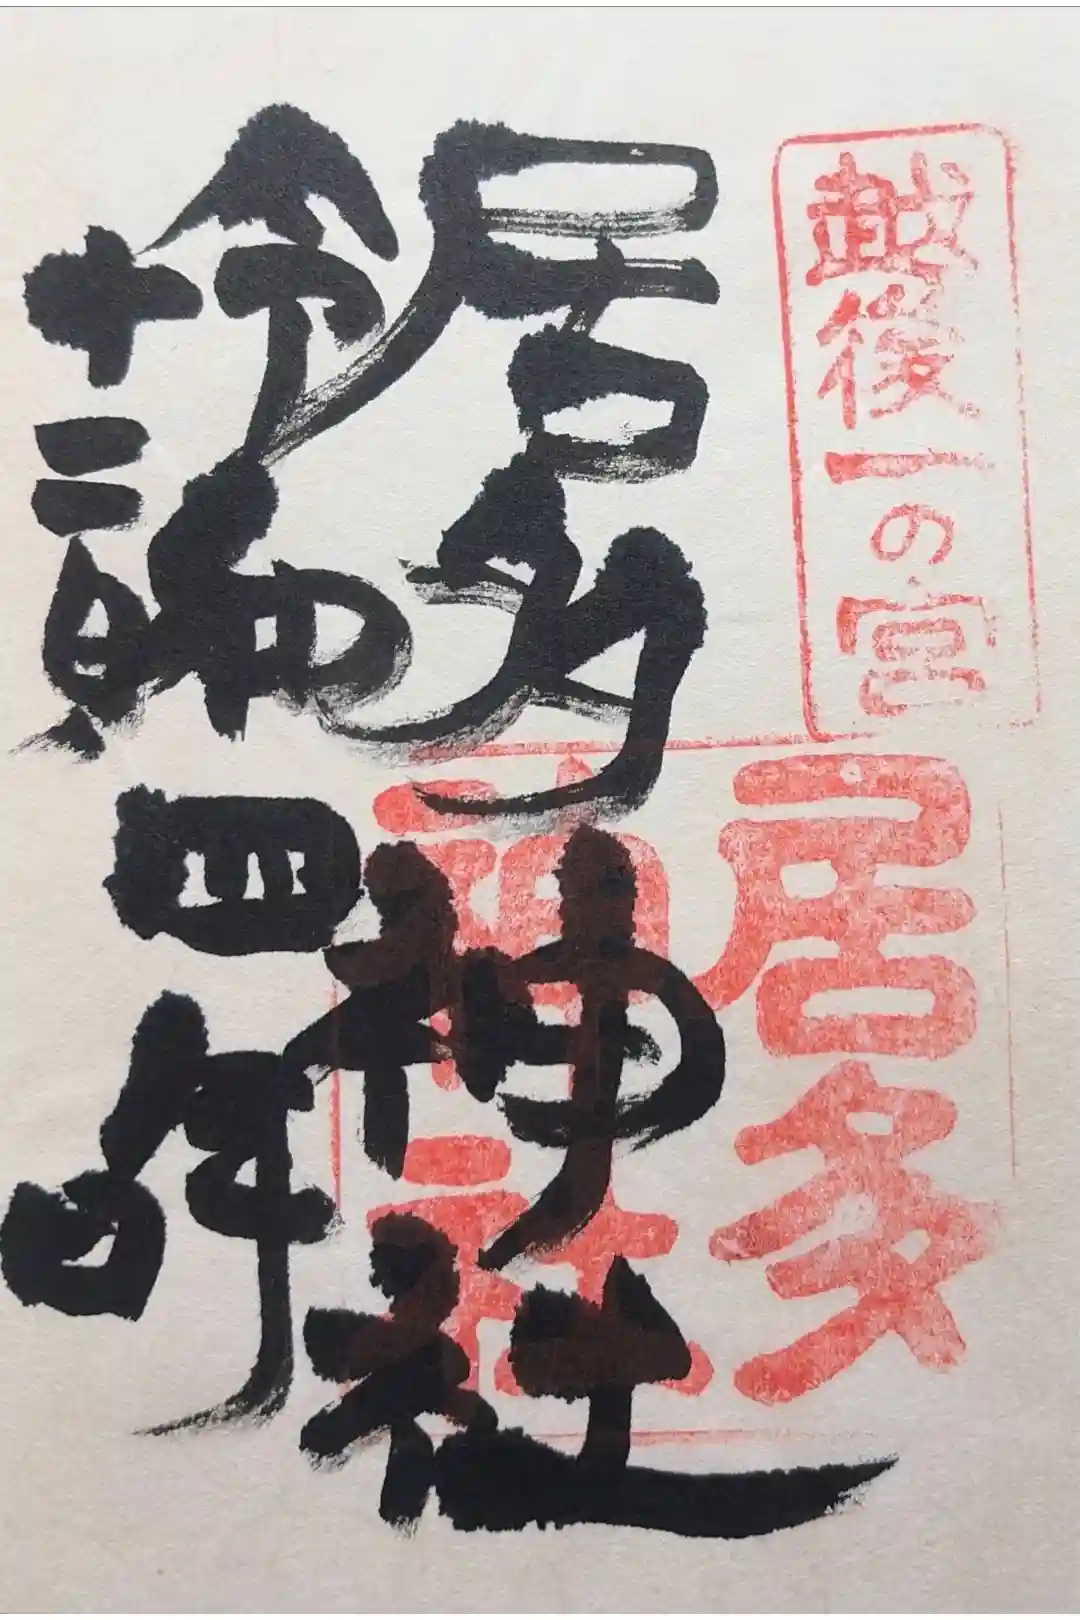 越後一の宮
居多神社
居多神社
令和四年
十二月